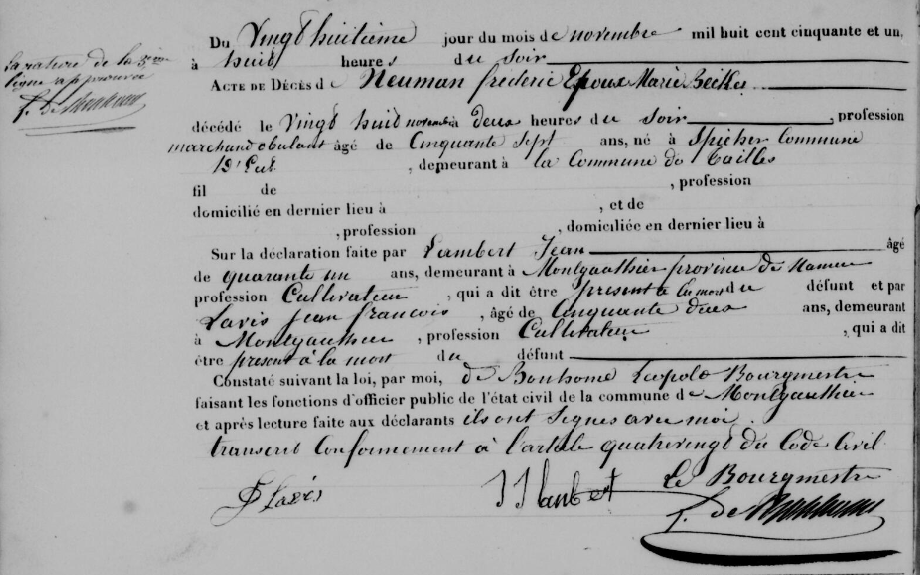 Du Vingt huitieme jour du mois de novembre mil huit cent cinquante et un,
à huit heures du soir
rature de la 3eme
ligne approuvée
ACTE DE DÉCÈS de Neuman frederic Epoux Marie Beckes
décédé le Vingt huit novembre à deux heures du soir, profession
marchand ambulant âgé de Cinquante Sept ans, né à Spicher Commune
, demeurant à la Commune de Tailles
fil de , profession
domicilié en dernier lieu à , et de
, profession , domiciliée en dernier lieu à
Sur la déclaration faite par Lambert Jean âgé
de quarante un ans, demeurant à Montgauthier province de Namur
profession Cultivateur , qui a dit être present à la mort du défunt et par
Lavis jean francois , âgé de Cinquante deux ans, demeurant
à Montgauthier , profession Cultivateur , qui a dit
être present à la mort du défunt
Constaté suivant la loi, par moi, de Bonhome Leopold Bourgmestre
faisant les fonctions d'officier public de l'état civil de la commune de Montgauthier
et après lecture faite aux déclarants ils ont Signes avec moi
transcrit Conformement à l'article quatrevingt du Code Civil
Le Bourgmestre
Lavis